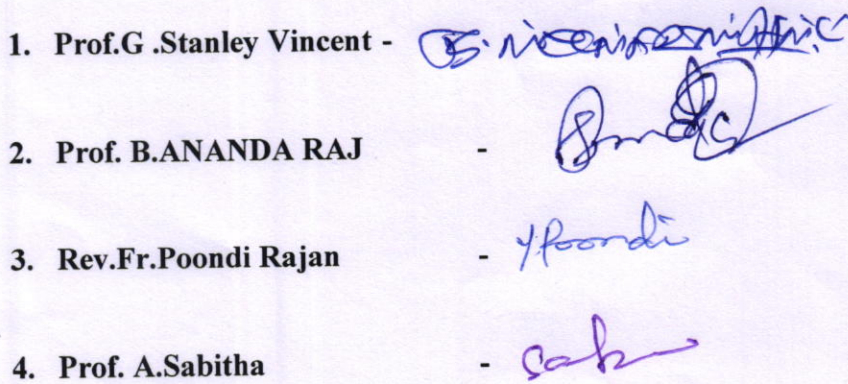 1. Prof.G .Stanley Vincent -
2. Prof. B.ANANDA RAJ -
3. Rev.Fr.Poondi Rajan - Y.Poondi
4. Prof. A.Sabitha -